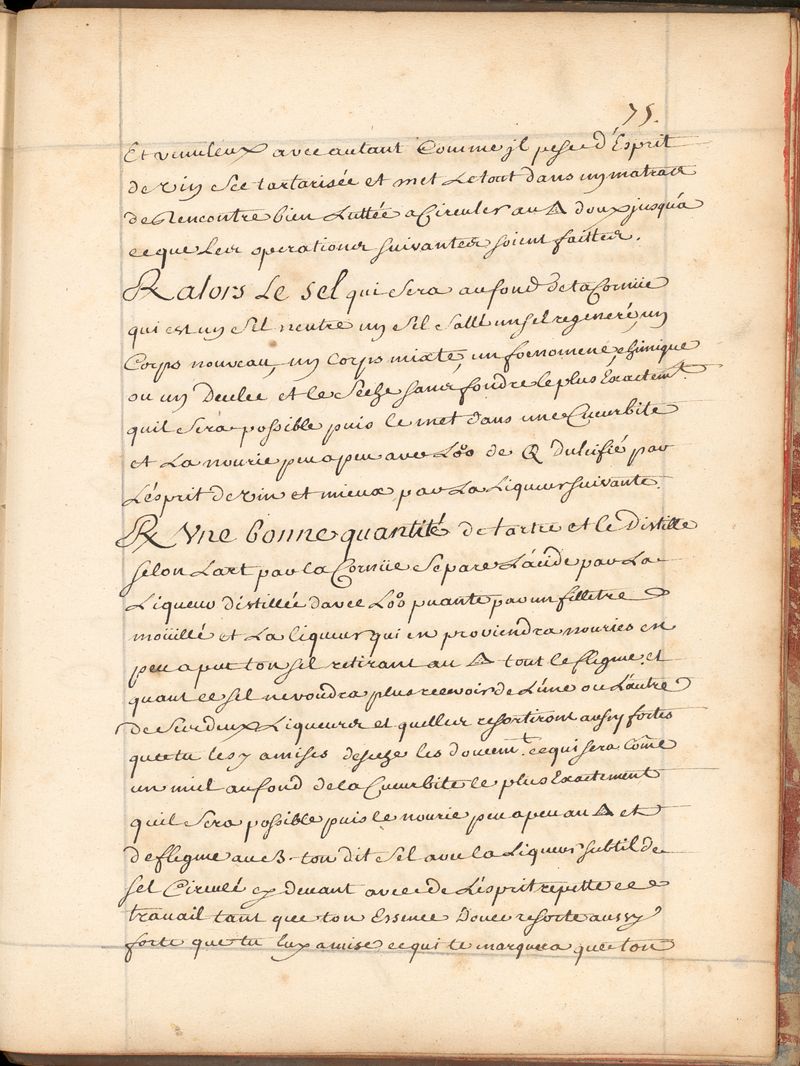 75.
Et vinuleux avec autant Comme jl pese d'Esprit
de vin Sec tartarisée et met Letout dans un matras
de Rencontre bien Luttée a Circuler au 🜂 doux jusqu'a
ce que Les operations suivantes soient faittes.
℞ alors Le sel qui Sera au fond de ta Cornüe
qui est un Sel neutre un Sel Sallé un sel regeneré, un
Corps nouveau, un Corps mixte, un foenomene chimique
ou un Deulce et le Seche sans fondre le plus Exactemt.
quil Sera possible puis le met dans une Cucurbite
et La nourie peu a peu avec L'oo de dulcifié par
L'esprit de vin et mieux par La Liqueur suivante.
℞ Vne bonne quantité de tartre et le Distille
selon L'art par la Cornüe Separe L'acide par La
Liqueur distillée davec L'oo puante par un filletre
moüillé et La liqueur qui en proviendra nouries en
peu a peu ton sel retirant au 🜂 tout le flegme. et
quant ce sel ne voudra plus recevoir de L'une ou L'autre
de Ses deux Liqueurs et quelles resortiront aussy fortes
que tu les y a mises deseche les doucemt. ce qui sera Côme
un miel au fond de la Cucurbite le plus Exactement
quil Sera possible puis le nourie peu a peu au 🜂 et
deflegme au B. ton dit Sel avec la Liqueur subtil de
sel Circulé cy devant avec de L'esprit repette ce
travail tant que ton Essence Douce resorte aussy
forte que tu lux a mise ce qui te marquera que ton